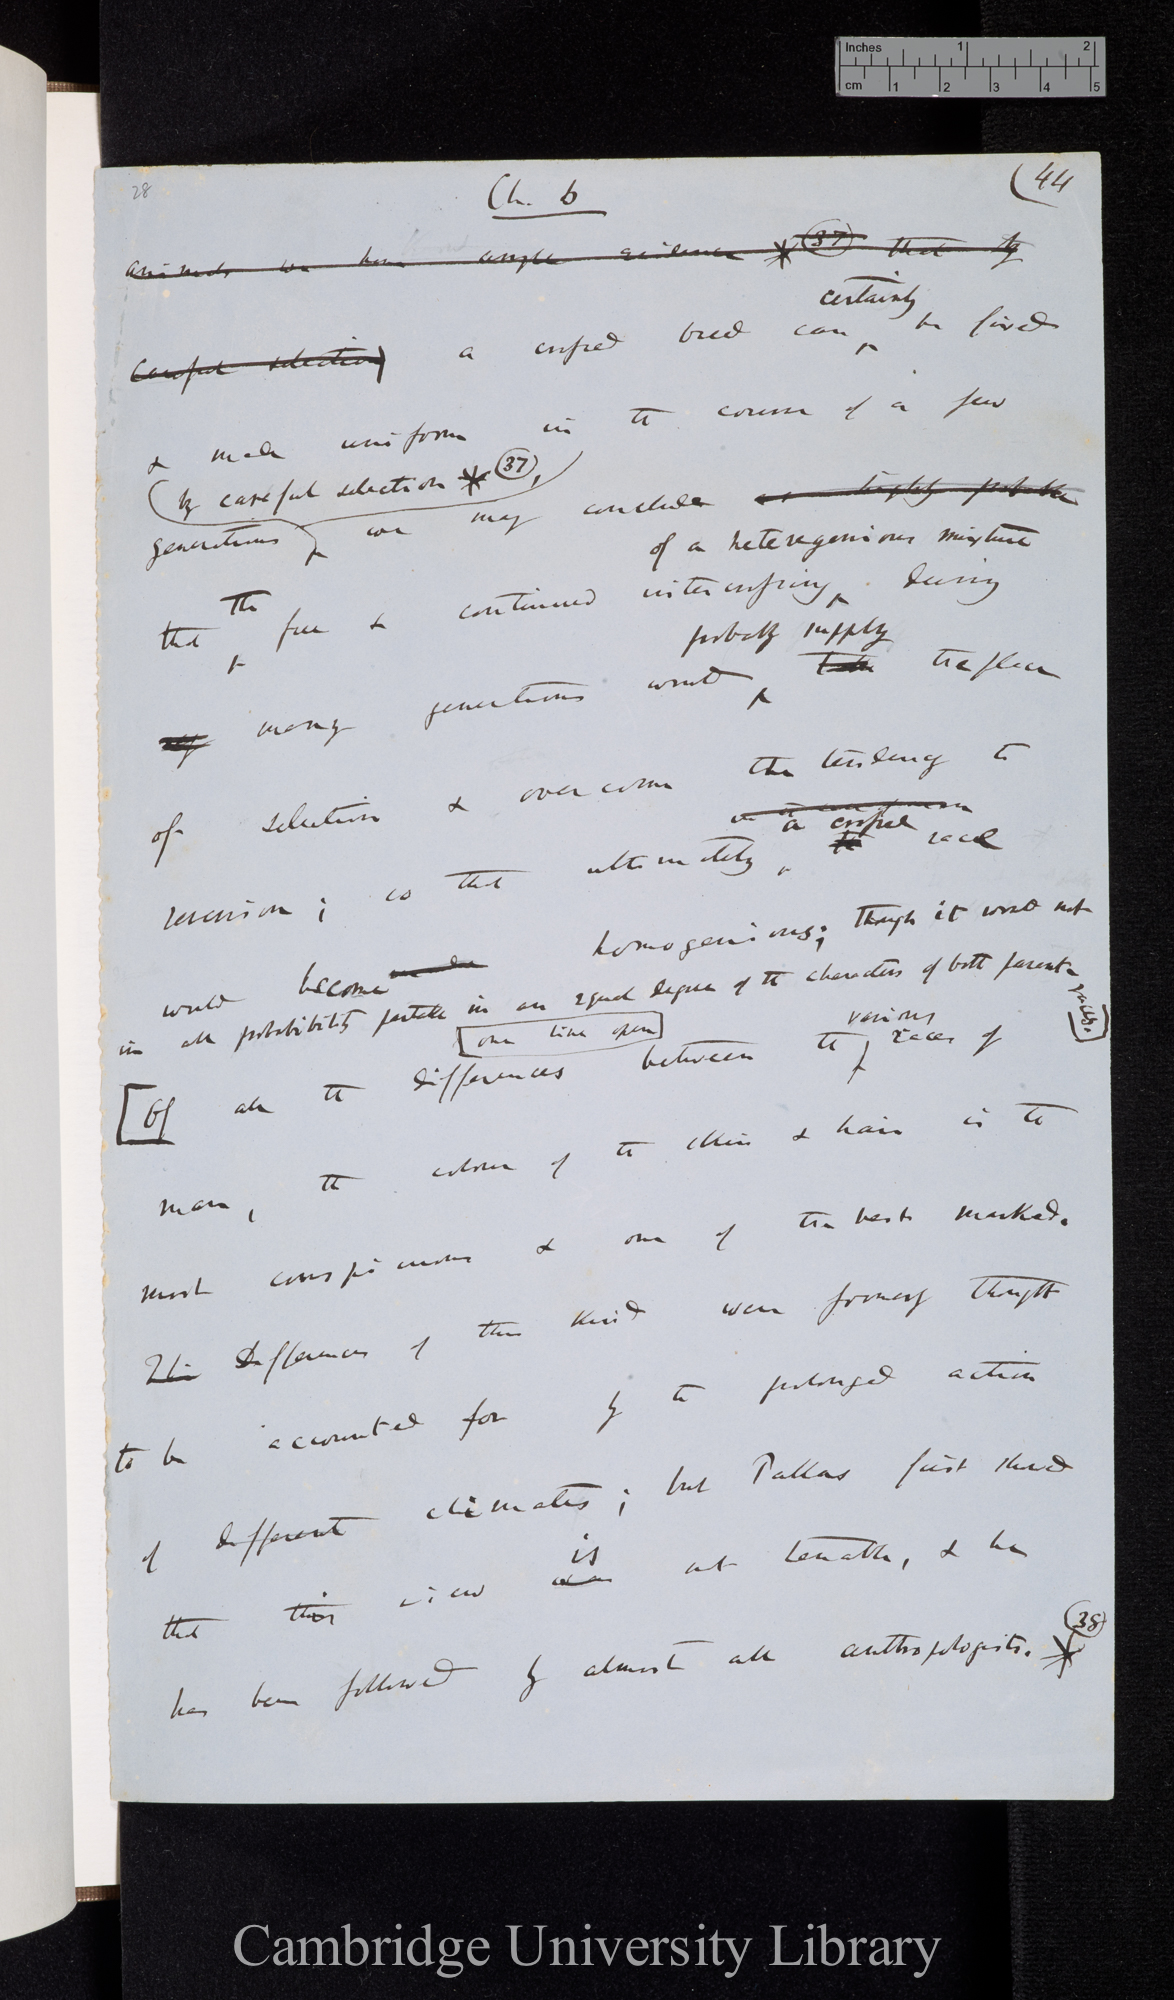 Inches 1 2
cm 1 2 3 4 5
28
Ch. 6
(44
animals we have ample evidence * (37) that by
certainly
careful selection) a crossed breed can be fixed
& made uniform in the course of a few
(by careful selection * (37),)
generations, we may conclude as highly probable
of a heterogenious mixture
that the free & continued intercrossing during
probably supply
many generations would take the place
of selection & overcome the tendency to
a crossed
reversion; so that ultimately the race
would become homogenious; though it would not
in all probability partake in an equal degree of the characters of both parent-races.]
[one line open]
various
[Of all the differences between the races of
man, the colour of the skin & hair is the
most conspicuous & one of the best marked.
The Differences of this kind were formerly thought
to be accounted for by the prolonged action
of different climates; but Pallas first shewed
is
that this view was not tenable, & he
has been followed by almost all anthropologists. * (38)
Cambridge University Library